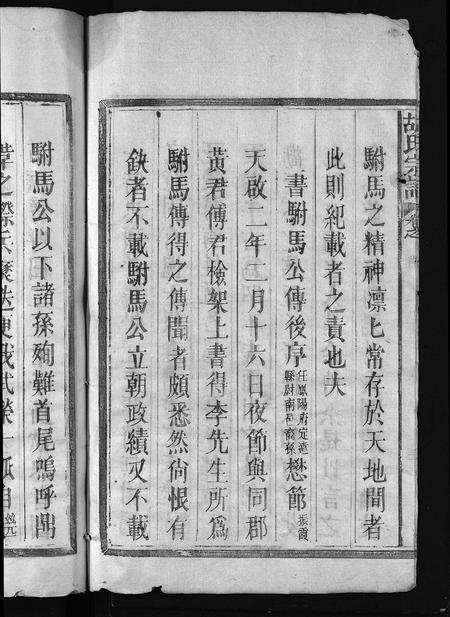 駙馬之精神凛匕常存於天地間者
此則紀載者之責也夫
書駙馬公傳後序 任鳳陽府定遠縣尉南邑裔孫 懋節 振霞
天啟二年二月十六日夜節與同郡
黃君傅君檢架上書得李先生所為
駙馬傳得之傳聞者頗悉然尙恨有
缺者不載駙馬公立朝政績又不載
駙馬公以下諸孫殉難首尾嗚呼